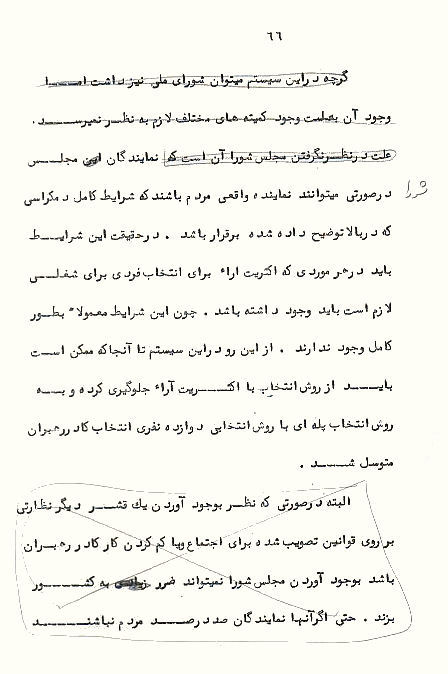 ٦٦
گرچه در این سیستم میتوان شورای ملی نیز داشت امـــا
وجود آن بعلت وجود کمیته های مختلف لازم به نظر نمیرســـد .
علت در نظر نگرفتن مجلس شورا آن است که نمایندگان این مجلــس
شورا
در صورتی میتوانند نماینده واقعی مردم باشند که شرایط کامل دمکراسی
که در بالا توضیح داده شده برقرار باشد . در حقیقت این شرایــط
باید در هر موردی که اکثریت اراء برای انتخاب فردی برای شغلــی
لازم است باید وجود داشته باشد . چون این شرایط معمولاً بطــور
کامل وجود ندارند . از این رو در این سیستم تا آنجا که ممکن اســت
بایـــد از روش انتخاب با اکثـــریت آراء جلوگیری کرده و بـــه
روش انتخاب پله ای با روش انتخابی دوازده نفری انتخاب کادر رهبران
متوسل شـــد .
البته در صورتی که نظــر بوجود آوردن یك قشــر دیگر نظارتی
بر روی قوانین تصویب شده برای اجتماع و یا کم کردن کار کادر رهبــران
باشد بوجود آوردن مجلس شورا نمیتواند ضرر به کشـــور
بزند . حتی اگر آنها نمایندگان صد در صـــد مردم نباشنـــد